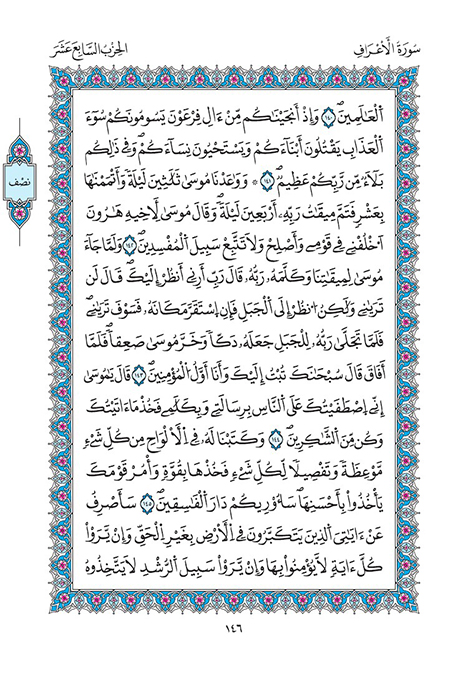 سُورَةُ الْأَعْرَافِ
الحِزْبُ السَّابِعَ عَشَرَ
نصْف
اَ۬لْعَٰلَمِينَۖ ١٤٠ وَإِذْ أَنجَيْنَٰكُم مِّنْ ءَالِ فِرْعَوْنَ يَسُومُونَكُمْ سُوٓءَ
اَ۬لْعَذَابِ يَقْتُلُونَ أَبْنَآءَكُمْ وَيَسْتَحْيُونَ نِسَآءَكُمْۖ وَفِے ذَٰلِكُم
بَلَآءٞ مِّن رَّبِّكُمْ عَظِيمٞۖ ١٤١ ۞ وَوَٰعَدْنَا مُوس۪ىٰ ثَلَٰثِينَ لَيْلَةٗ وَأَتْمَمْنَٰهَا
بِعَشْرٖ فَتَمَّ مِيقَٰتُ رَبِّهِۦٓ أَرْبَعِينَ لَيْلَةٗۖ وَقَالَ مُوس۪ىٰ لِأَخِيهِ هَٰرُونَ
اَ۟خْلُفْنِے فِے قَوْمِے وَأَصْلِحْ وَلَا تَتَّبِعْ سَبِيلَ اَ۬لْمُفْسِدِينَۖ ١٤٢ وَلَمَّا جَآءَ
مُوس۪ىٰ لِمِيقَٰتِنَا وَكَلَّمَهُۥ رَبُّهُۥ قَالَ رَبِّ أَرِنِےٓ أَنظُرِ اِلَيْكَۖ قَالَ لَن
تَر۪ىٰنِے وَلَٰكِنُ اُ۟نظُرِ اِلَى اَ۬لْجَبَلِ فَإِنِ اِ۪سْتَقَرَّ مَكَانَهُۥ فَسَوْفَ تَر۪ىٰنِےۖ
فَلَمَّا تَجَلَّىٰ رَبُّهُۥ لِلْجَبَلِ جَعَلَهُۥ دَكّاٗ وَخَرَّ مُوس۪ىٰ صَعِقاٗۖ فَلَمَّآ
أَفَاقَ قَالَ سُبْحَٰنَكَ تُبْتُ إِلَيْكَ وَأَنَا أَوَّلُ اُ۬لْمُؤْمِنِينَۖ ١٤٣ قَالَ يَٰمُوس۪ىٰٓ
إِنِّے اِ۪صْطَفَيْتُكَ عَلَى اَ۬لنَّاسِ بِرِسَٰلَتِے وَبِكَلَٰمِے فَخُذْ مَآ ءَاتَيْتُكَ
وَكُن مِّنَ اَ۬لشَّٰكِرِينَۖ ١٤٤ وَكَتَبْنَا لَهُۥ فِے اِ۬لْأَلْوَاحِ مِن كُلِّ شَےْءٖ
مَّوْعِظَةٗ وَتَفْصِيلاٗ لِّكُلِّ شَےْءٖ فَخُذْهَا بِقُوَّةٖ وَأْمُرْ قَوْمَكَ
يَأْخُذُواْ بِأَحْسَنِهَاۖ سَأُوْرِيكُمْ دَارَ اَ۬لْفَٰسِقِينَۖ ١٤٥ سَأَصْرِفُ
عَنْ ءَايَٰتِيَ اَ۬لذِينَ يَتَكَبَّرُونَ فِے اِ۬لْأَرْضِ بِغَيْرِ اِ۬لْحَقِّ وَإِنْ يَّرَوْاْ
كُلَّ ءَايَةٖ لَّا يُؤْمِنُواْ بِهَا وَإِنْ يَّرَوْاْ سَبِيلَ اَ۬لرُّشْدِ لَا يَتَّخِذُوهُ
١٤٦